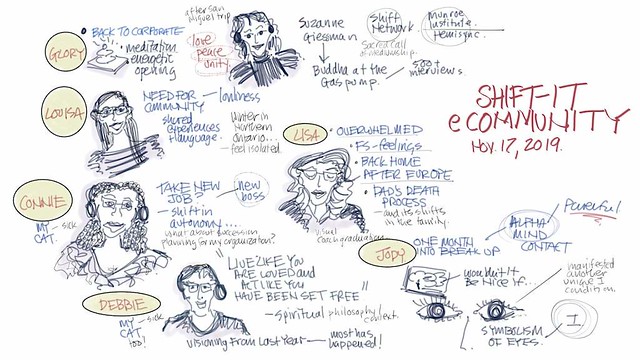 SHIFT-IT
eCOMMUNITY
NOV. 17, 2019.
GLORY
• BACK TO CORPORATE
• meditation
energetic
opening
after San
Miguel trip
love
peace
unity.
Suzanne
Giesman
Shift
Network.
Sacred call
of mediumship.
Munroe
Institute.
Hemisync.
Buddha at the
Gas pump.
500+
interviews.
LOUISA
NEED FOR
COMMUNITY
— loneliness
shared
experiences
+ language.
Winter in
Northern
Ontario...
— feel isolated.
LISA
• OVERWHELMED
• FS-feelings
• BACK HOME
AFTER EUROPE
• DAD'S DEATH
PROCESS
— and its shifts
in the family.
visual
coach graduation
CONNIE
MY
CAT.
— sick
TAKE NEW
JOB?
new
boss
— shift in
autonomy...
what about succession
planning for my organization?
DEBBIE
MY
CAT
too?
— sick
"LIVE LIKE YOU
ARE LOVED and
ACT LIKE YOU
HAVE BEEN SET FREE"
— spiritual philosophy context.
VISIONING FROM LAST YEAR — most has
happened!
JODY
ONE MONTH
INTO BREAK UP
ALPHA
MIND
CONTACT
Powerful
wouldn't it
Be Nice if...
manifested
another
unique I
condition.
SYMBOLISM
OF EYES.
I